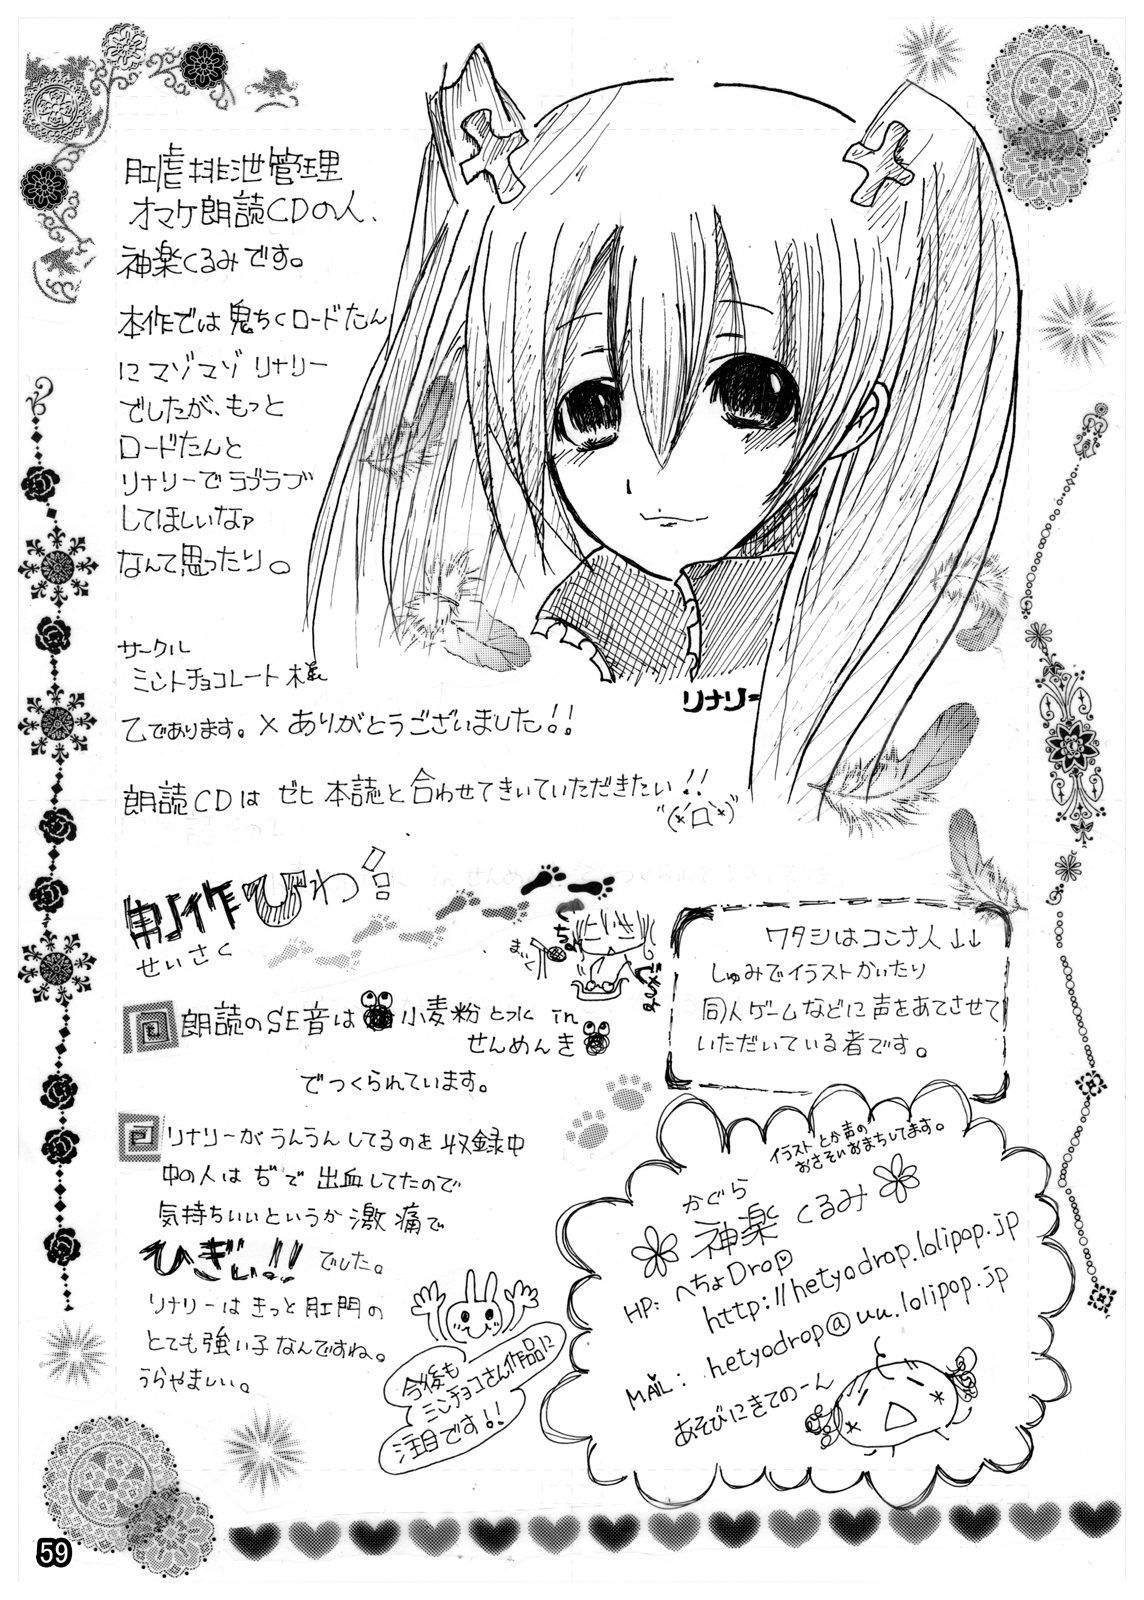 肛虐排泄管理
オマケ朗読CDの人、
神楽くるみです。
本作では鬼ちくロードたん
にマゾマゾ リナリー
でしたが、もっと
ロードたんと
リナリーでラブラブ
してほしいなァ
なんて思ったり。
サークル
ミントチョコレート様
乙であります。× ありがとうございました!!
朗読CDは ゼヒ 本誌と合わせてきいていただきたい!!
リナリー
制作ひわ
せいさく
朗読のSE音は 小麦粉と水 in
せんめんき
でつくられています。
リナリーがうんうんしてるのを収録中
中の人は ぢで 出血してたので
気持ちいいというか 激痛で
ひぎぃ!! でした。
リナリーはきっと肛門の
とても強い子なんですね。
うらやましい。
今後も
ミンチョコさん作品に
注目です!!
ワタシはコンナ人↓↓
しゅみでイラストかいたり
同人ゲームなどに声をあてさせて
いただいている者です。
イラストとか声の
おさそいおまちしてます。
かぐら
神楽くるみ
HP: へちょDrop
http://hetyodrop.lolipop.jp
MAIL: hetyodrop@uu.lolipop.jp
あそびにきてのーん
59